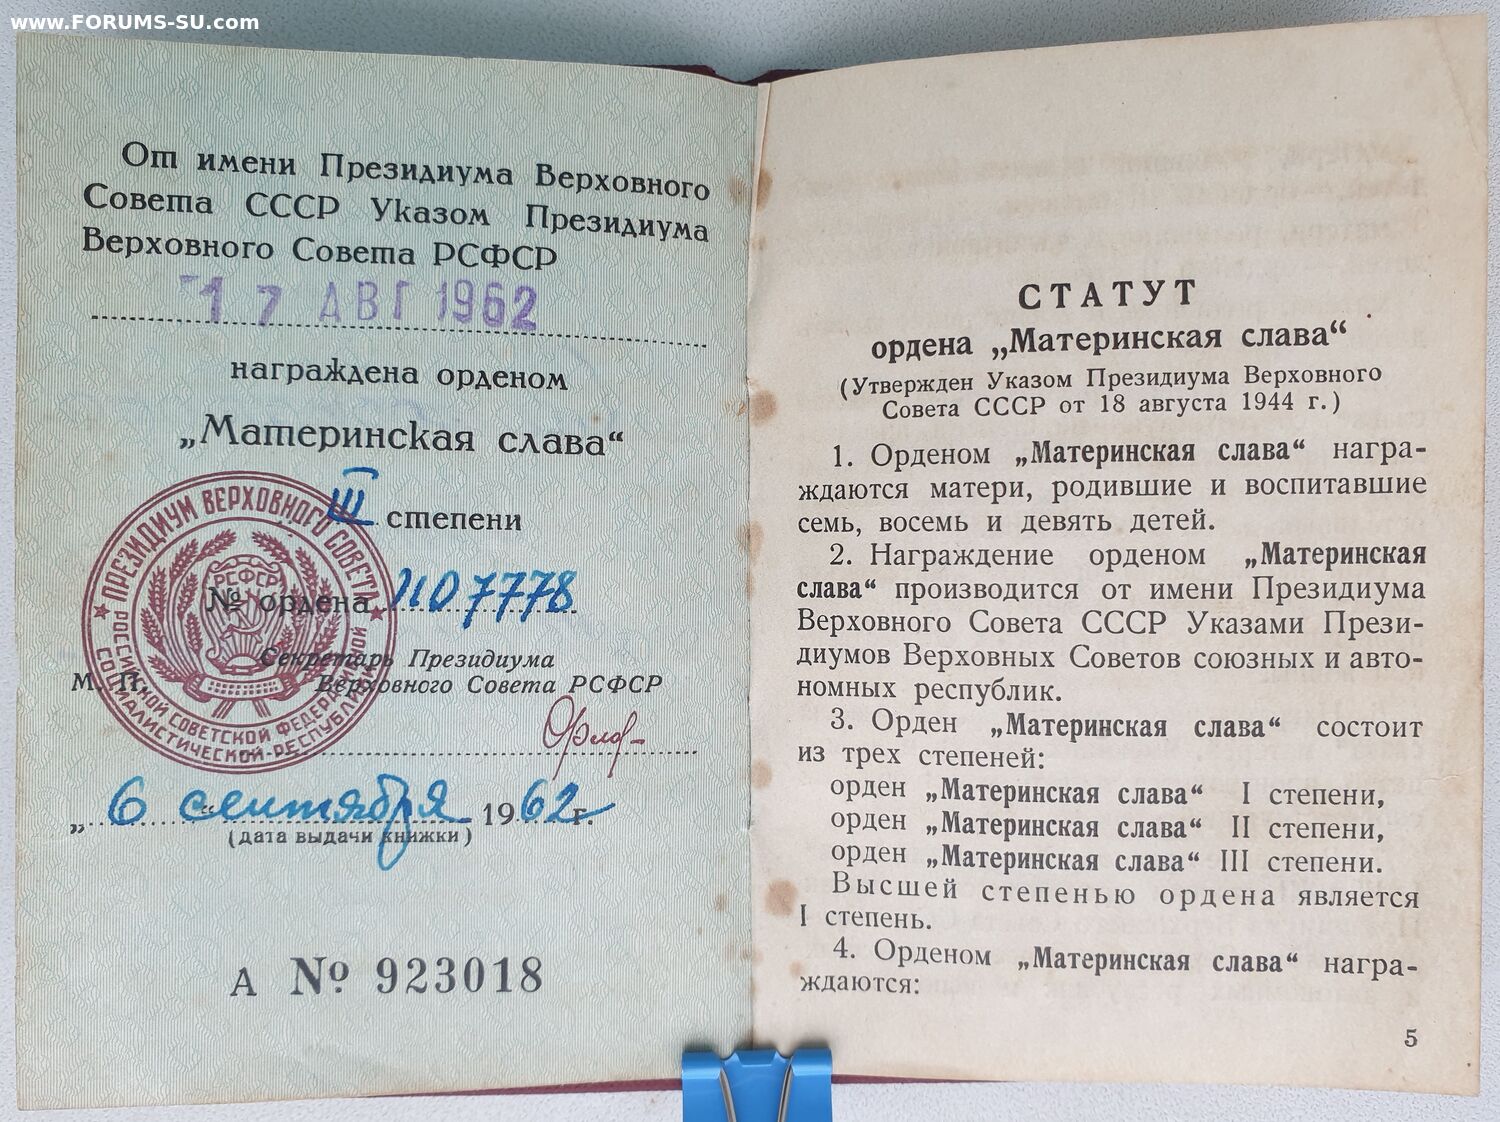 www.FORUMS-SU.com
От имени Президиума Верховного
Совета СССР Указом Президиума
Верховного Совета РСФСР
17 АВГ 1962
награждена орденом
„Материнская слава“
III степени
№ ордена 1107778
Секретарь Президиума
М. П. Верховного Совета РСФСР
„6“ сентября 1962 г.
(дата выдачи книжки)
А № 923018
ПРЕЗИДИУМ ВЕРХОВНОГО СОВЕТА
РОССИЙСКОЙ СОВЕТСКОЙ ФЕДЕРАТИВНОЙ
СОЦИАЛИСТИЧЕСКОЙ РЕСПУБЛИКИ
РСФСР
СТАТУТ
ордена „Материнская слава“
(Утвержден Указом Президиума Верховного
Совета СССР от 18 августа 1944 г.)
1. Орденом „Материнская слава“ награ-
ждаются матери, родившие и воспитавшие
семь, восемь и девять детей.
2. Награждение орденом „Материнская
слава“ производится от имени Президиума
Верховного Совета СССР Указами Прези-
диумов Верховных Советов союзных и авто-
номных республик.
3. Орден „Материнская слава“ состоит
из трех степеней:
орден „Материнская слава“ I степени,
орден „Материнская слава“ II степени,
орден „Материнская слава“ III степени.
Высшей степенью ордена является
I степень.
4. Орденом „Материнская слава“ награ-
ждаются:
5